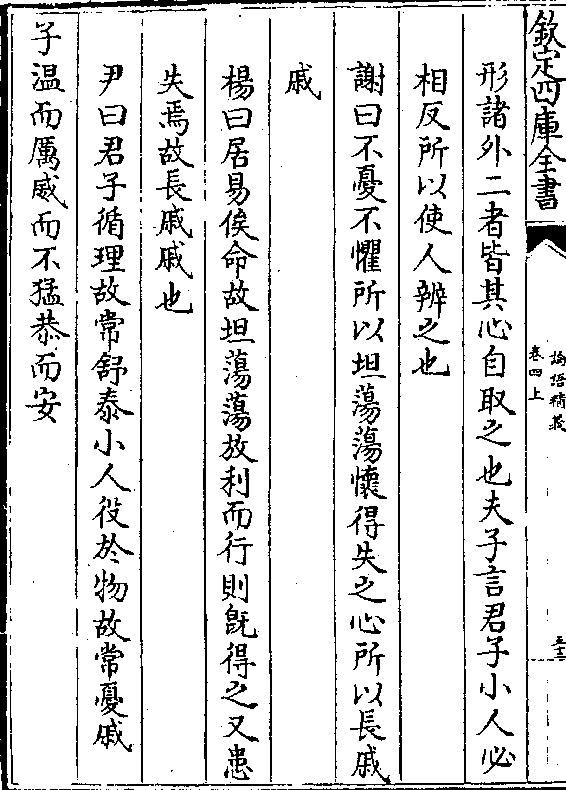 欽定四庫全書
論語精義
卷四上
形諸外二者皆其心自取之也夫子言君子小人必
相反所以使人辨之也
謝曰不憂不懼所以坦蕩蕩懷得失之心所以長戚
戚
楊曰居易俟命故坦蕩蕩放利而行則旣得之又患
失焉故長戚戚也
尹曰君子循理故常舒泰小人役於物故常憂戚
子温而厲威而不猛恭而安